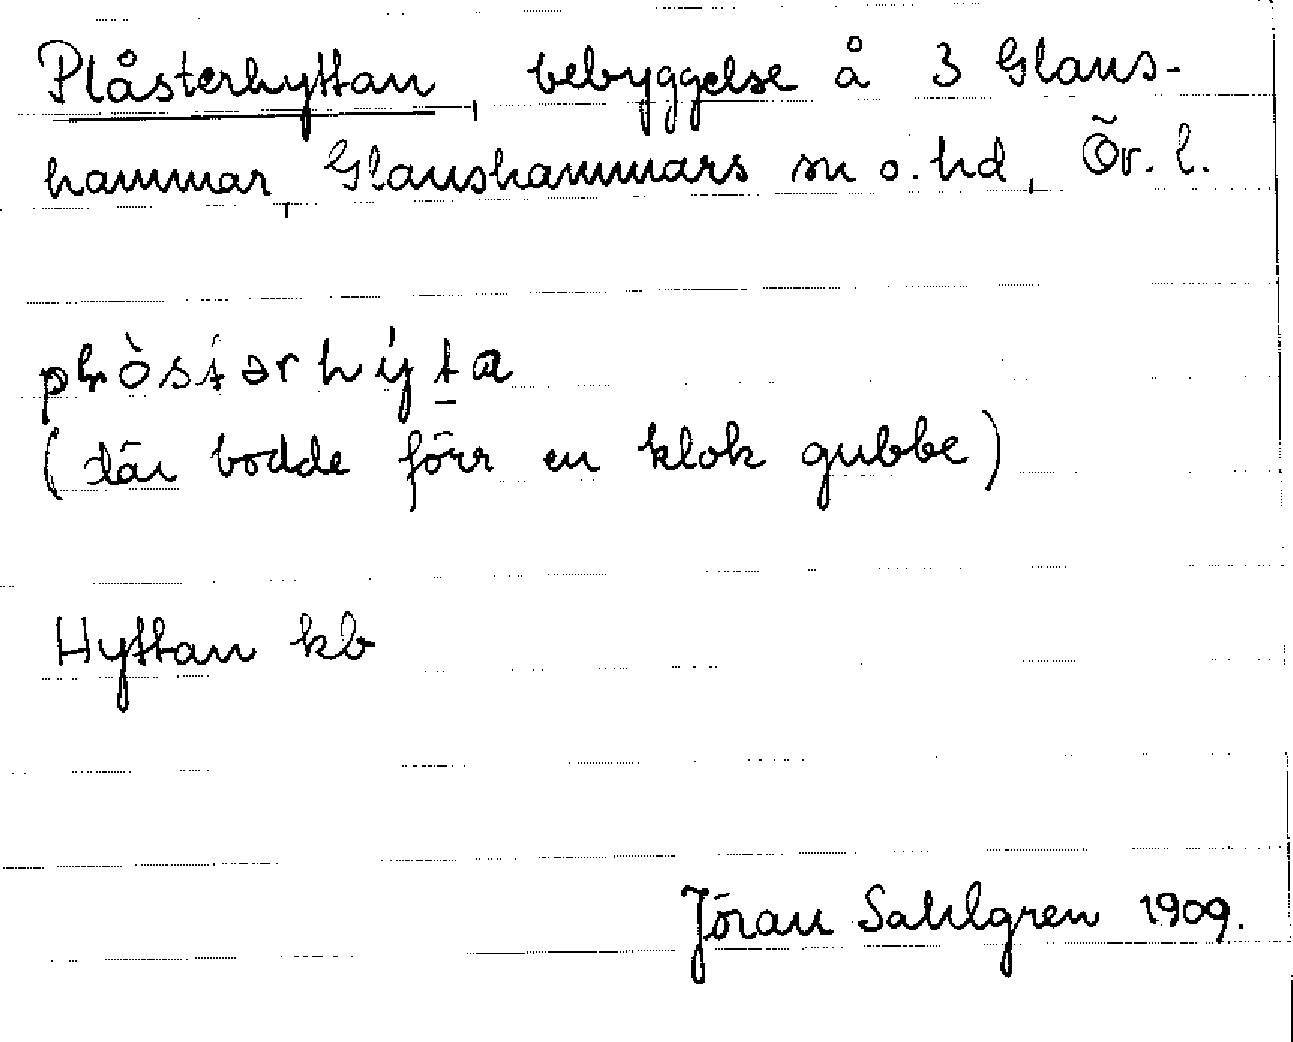 Plåsterhyttan, bebyggelse å 3 Glans-
hammar, Glanshammars sn o. hd, Ör. l.
plòstərhýta
(där bodde förr en klok gubbe)
Hyttan kb
Jöran Sahlgren 1909.